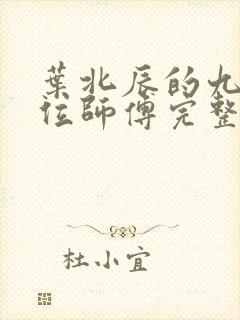 葉北辰的九
位師傅完整
杜小宜